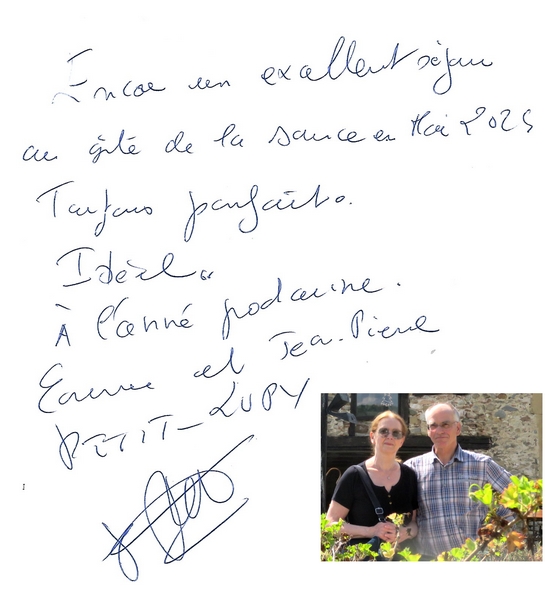 Encore un excellent séjour
au gîte de la source en Mai 2025
Toujours parfait.
Idéal.
À l'anné prochaine.
et Jean-Pierre
PETIT-LUPY